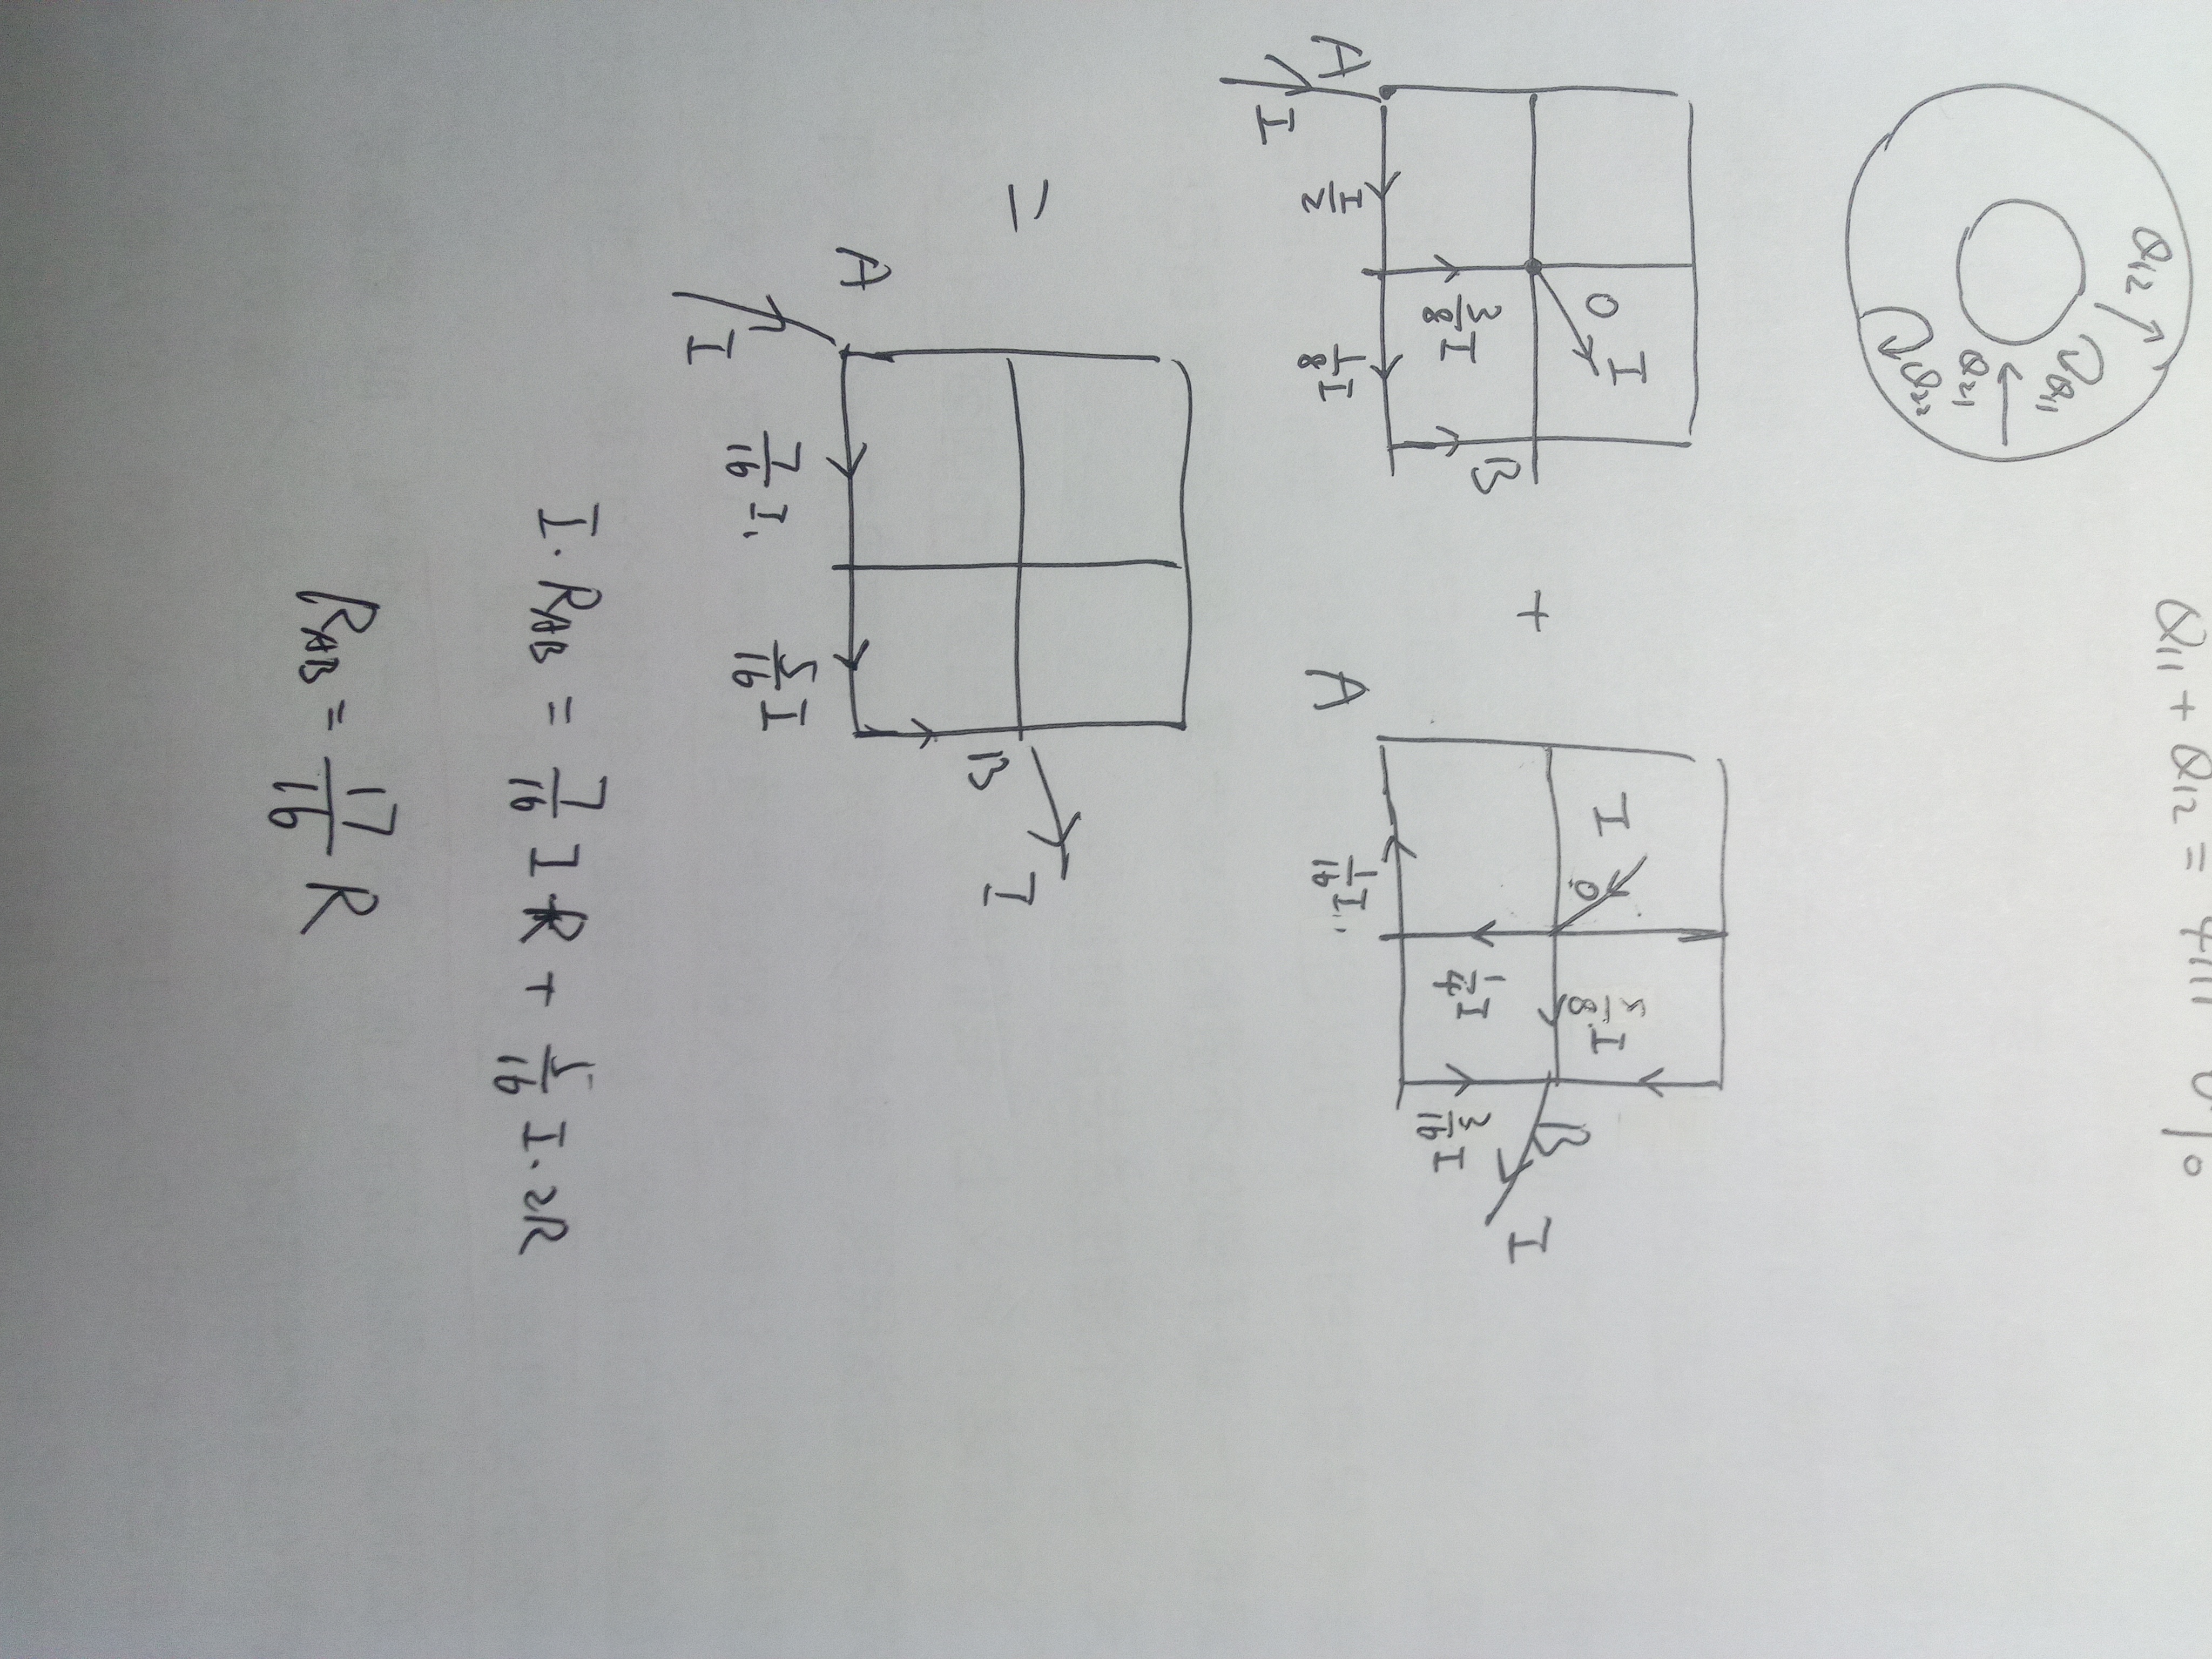 Q11 + Q12 = 4π
Q12
Q11
Q21
Q22
A
I
I/2
3/8 I
1/8 I
O
I
B
+
A
I
O
1/16 I
1/4 I
5/8 I
3/16 I
B
I
=
A
I
7/16 I
5/16 I
B
I
I·RAB = 7/16 I·R + 5/16 I·2R
RAB = 17/16 R